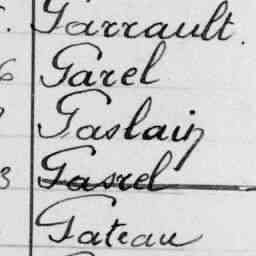 Garrault.
6 Garel
Gaslain
3 Gasrel
Gateau